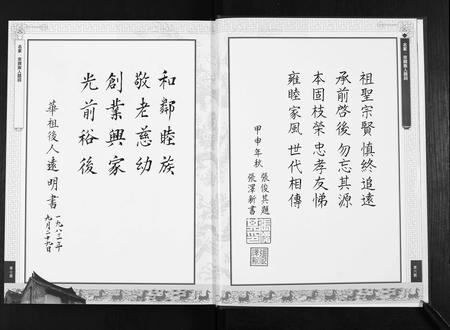 祖聖宗賢 慎終追遠
承前啓後 勿忘其源
本固枝榮 忠孝友悌
雍睦家風 世代相傳
甲申年秋 張俊其題
張澤新書
和鄰睦族
敬老慈幼
創業興家
光前裕後
華祖後人遠明書
一九八三年
九月二十九日